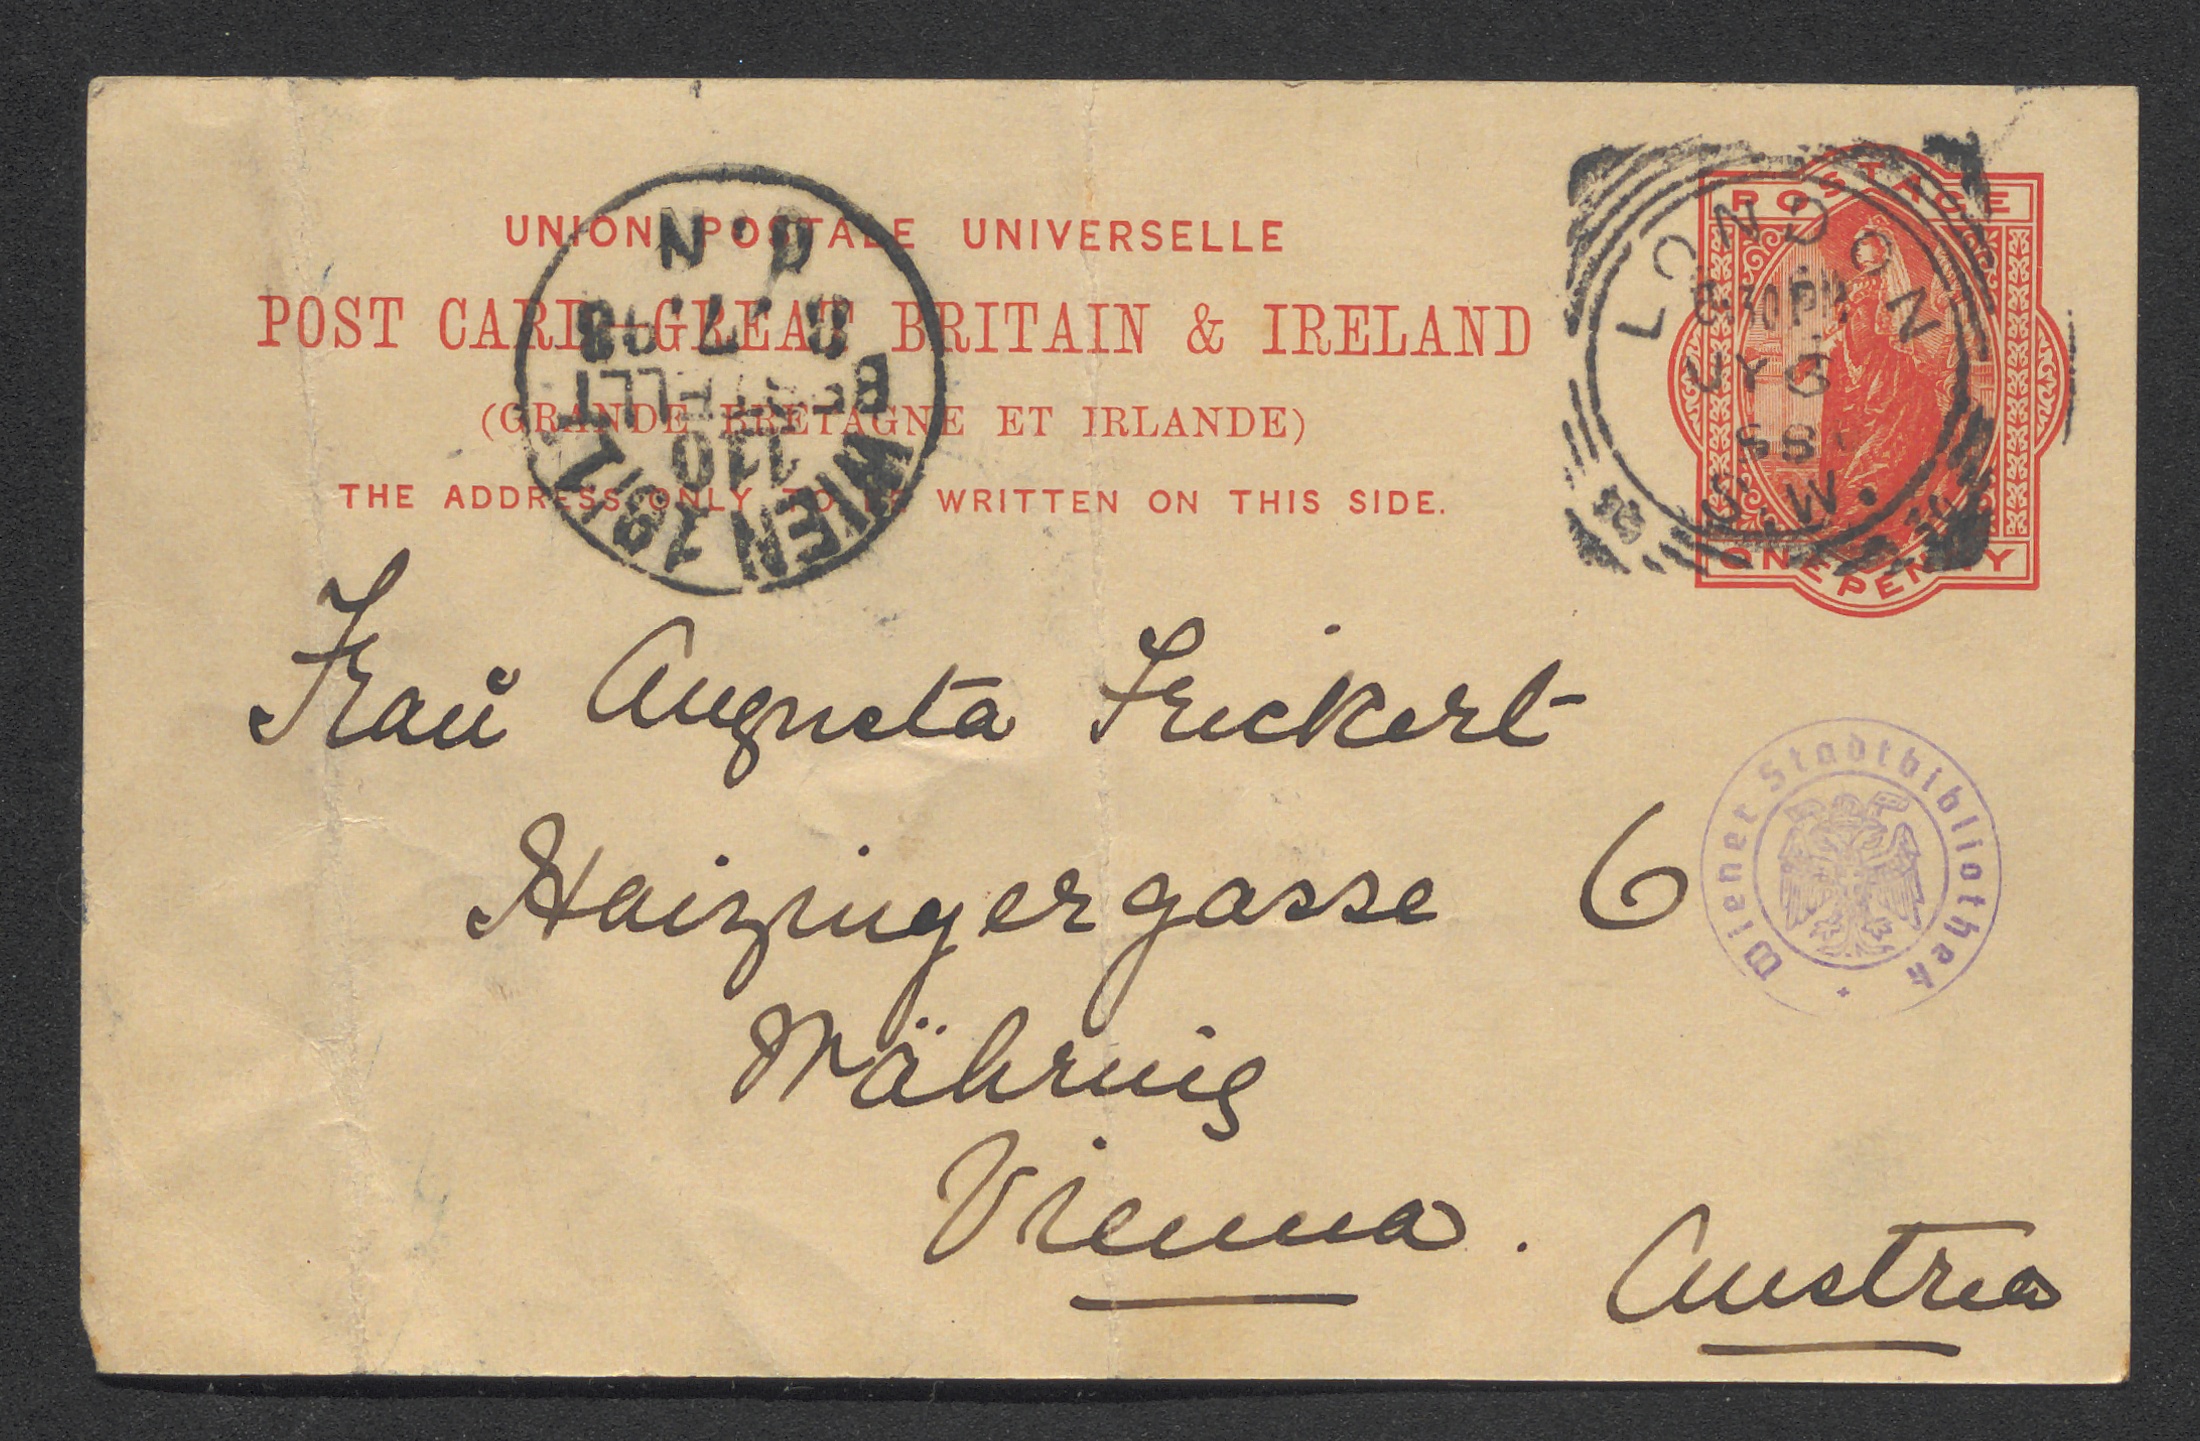 UNION POSTALE UNIVERSELLE
POST CARD—GREAT BRITAIN & IRELAND
(GRANDE BRETAGNE ET IRLANDE)
THE ADDRESS ONLY TO BE WRITTEN ON THIS SIDE.
POSTAGE
ONE PENNY
LONDON
JY 6
S.W.
WIEN 18/1
110
BESTELLT
8.7.98
N
Frau Augusta Fickert
Haizingergasse 6
Währing
Vienna.
Austria
Wiener Stadtbibliothek